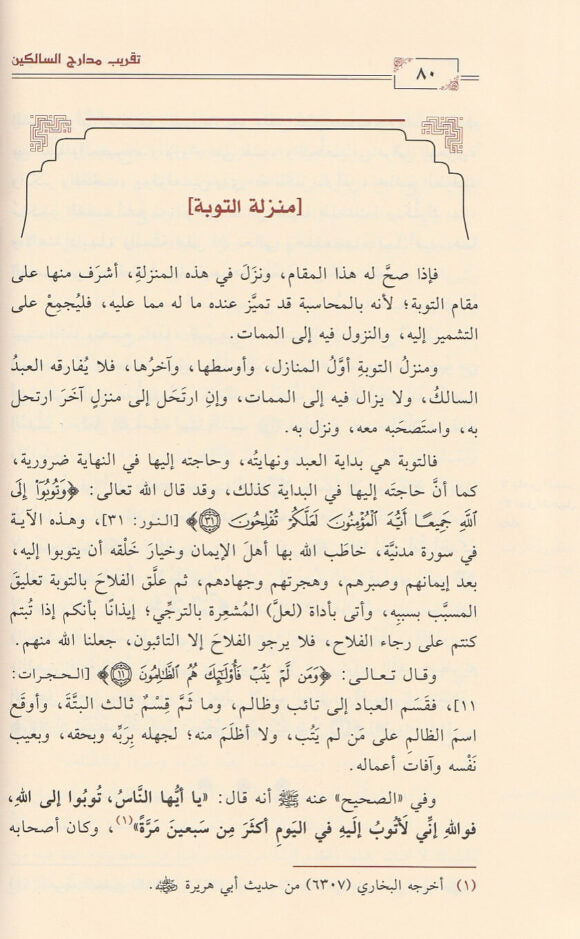 تقريب مدارج السالكين
٨٠
[منزلة التوبة]
فإذا صحَّ له هذا المقام، ونزَلَ في هذه المنزلةِ، أشرَف منها على
مقام التوبة؛ لأنه بالمحاسبة قد تميَّز عنده ما له مما عليه، فليُجمِعْ على
التشمير إليه، والنزول فيه إلى الممات.
ومنزلُ التوبةِ أوَّلُ المنازل، وأوسطها، وآخرُها، فلا يُفارقه العبدُ
السالكُ، ولا يزال فيه إلى الممات، وإنِ ارتَحَل إلى منزلٍ آخَرَ ارتحل
به، واستَصْحَبه معه، ونزل به.
فالتوبة هي بداية العبد ونهايتُه، وحاجته إليها في النهاية ضرورية،
كما أنَّ حاجتَه إليها في البداية كذلك، وقد قال الله تعالى: ﴿وَتُوبُوٓا۟ إِلَى
ٱللَّهِ جَمِيعًا أَيُّهَ ٱلْمُؤْمِنُونَ لَعَلَّكُمْ تُفْلِحُونَ ۝٣١﴾ [النور: ٣١]، وهذه الآية
في سورة مدنيَّة، خاطَب الله بها أهلَ الإيمان وخيارَ خَلْقه أن يتوبوا إليه،
بعد إيمانهم وصبرهم، وهجرتهم وجهادهم، ثم علَّق الفلاحَ بالتوبة تعليقَ
المسبَّب بسببِه، وأتى بأداة (لعلَّ) المُشعِرة بالترجِّي؛ إيذانًا بأنكم إذا تُبتم
كنتم على رجاء الفلاح، فلا يرجو الفلاحَ إلا التائبون، جعلنا الله منهم.
وقال تعالى: ﴿وَمَن لَّمْ يَتُبْ فَأُو۟لَـٰٓئِكَ هُمُ ٱلظَّـٰلِمُونَ ۝١١﴾ [الحجرات:
١١]، فقسَم العباد إلى تائب وظالم، وما ثَمَّ قِسْمٌ ثالث البتَّةَ، وأوقَع
اسمَ الظالمِ على مَن لم يَتُب، ولا أظلَمَ منه؛ لجهله بِرَبِّه وبحقه، وبعيب
نَفْسه وآفات أعماله.
وفي «الصحيح» عنه ﷺ أنه قال: «يا أيُّها النَّاسُ، تُوبُوا إلى اللهِ،
فواللهِ إنِّي لَأتُوبُ إلَيهِ في اليَومِ أكثَرَ مِن سَبعينَ مَرَّةً»(١)، وكان أصحابه
(١) أخرجه البخاري (٦٣٠٧) من حديث أبي هريرة رضي الله عنه.